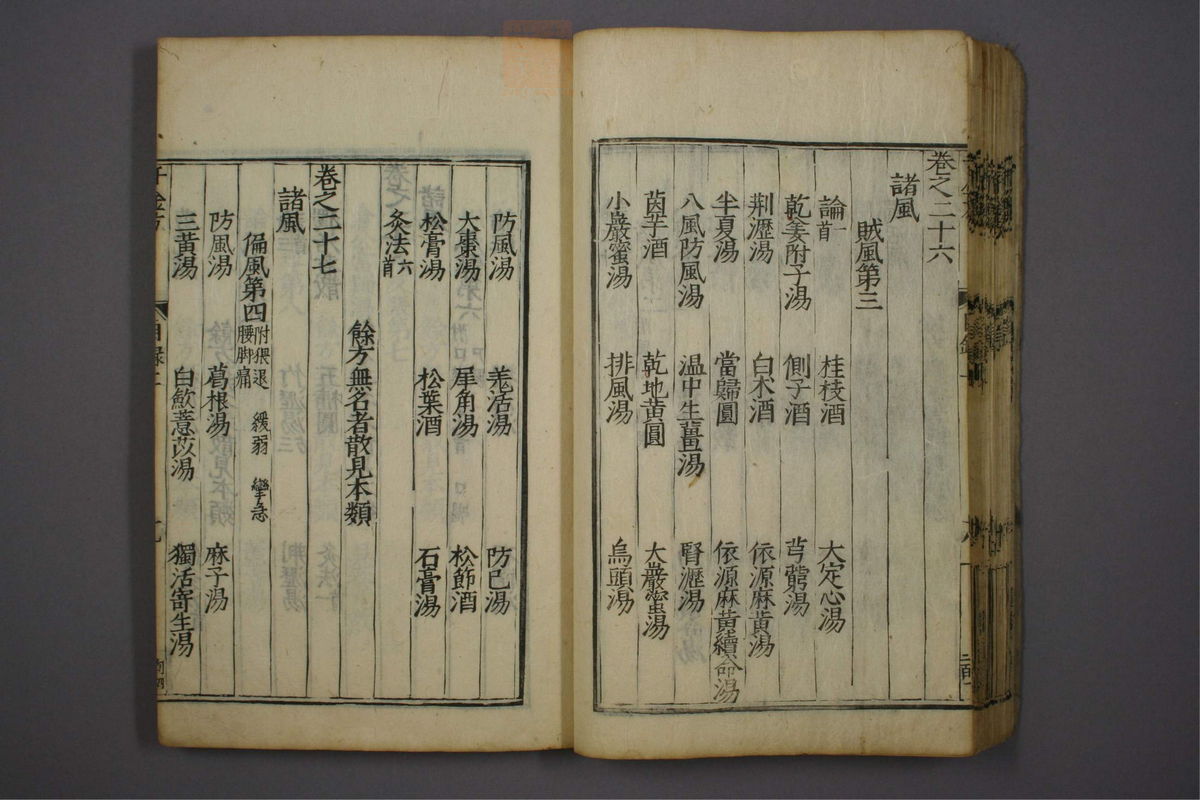 卷之二十六
諸風
賊風第三
論一首 桂枝酒 大定心湯
乾姜附子湯 側子酒 芎藭湯
荆瀝湯 白朮酒 依源麻黃湯
半夏湯 當歸圓 依源麻黃續命湯
八風防風湯 温中生薑湯 腎瀝湯
茵芋酒 乾地黃圓 大巖蜜湯
小巖蜜湯 排風湯 烏頭湯
防風湯 羌活湯 防已湯
大棗湯 犀角湯 松節酒
松膏湯 松葉酒 石膏湯
灸法六首
餘方無名者散見本類
卷之二十七
諸風
偏風第四附猥退腰脚痛 緩弱 攣急
防風湯 葛根湯 麻子湯
三黃湯 白歛薏苡湯 獨活寄生湯